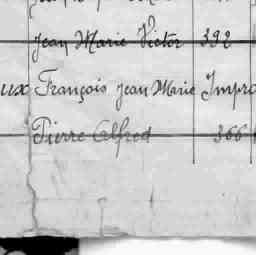 Jean Marie Victor 392
ux François Jean Marie Impr
Pierre Alfred 366